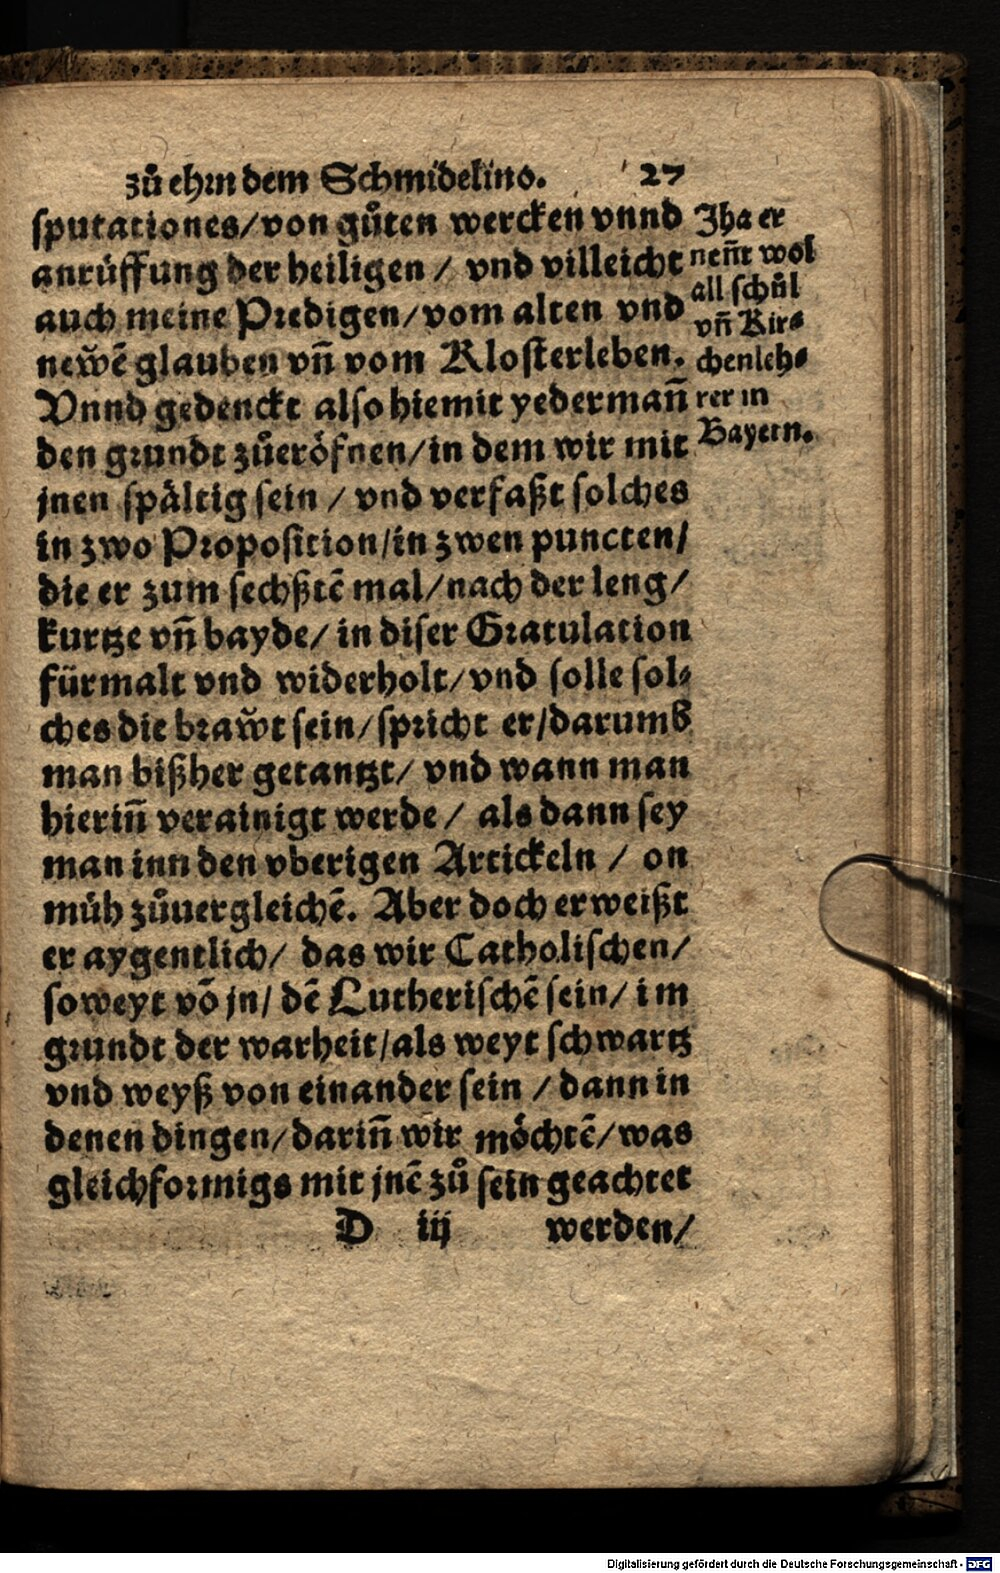 zů ehrn dem Schmidelino. 27
sputationes/von gůten wercken vnnd
anrüffung der heiligen / vnd villeicht
auch meine Predigen/vom alten vnd
newẽ glauben vñ vom Klosterleben.
Vnnd gedenckt also hiemit yedermañ
den grundt zůeröfnen/in dem wir mit
jnen spältig sein / vnd verfaßt solches
in zwo Proposition/in zwen puncten/
die er zum sechßtẽ mal/nach der leng/
kurtze vñ bayde/ in diser Gratulation
fürmalt vnd widerholt/vnd solle sol⸗
ches die brawt sein/spricht er/darumb
man bißher getantzt/ vnd wann man
hieriñ verainigt werde / als dann sey
man inn den vberigen Artickeln / on
müh zůuergleichẽ. Aber doch erweißt
er aygentlich/ das wir Catholischen/
so weyt võ jn/ dẽ Lutherischẽ sein/ im
grundt der warheit/als weyt schwartz
vnd weyß von einander sein / dann in
denen dingen/dariñ wir möchtẽ/was
gleichformigs mit jnẽ zů sein geachtet
D iij werden/
Jha er
neñt wol
all schůl
vñ Kir⸗
chenleh⸗
rer in
Bayern.
Digitalisierung gefördert durch die Deutsche Forschungsgemeinschaft - DFG